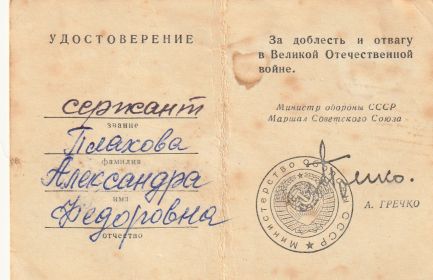 УДОСТОВЕРЕНИЕ
сержант
звание
Плахова
фамилия
Александра
имя
Федоровна
отчество
За доблесть и отвагу
в Великой Отечественной
войне.
Министр обороны СССР
Маршал Советского Союза
А. ГРЕЧКО
Министерство Обороны СССР